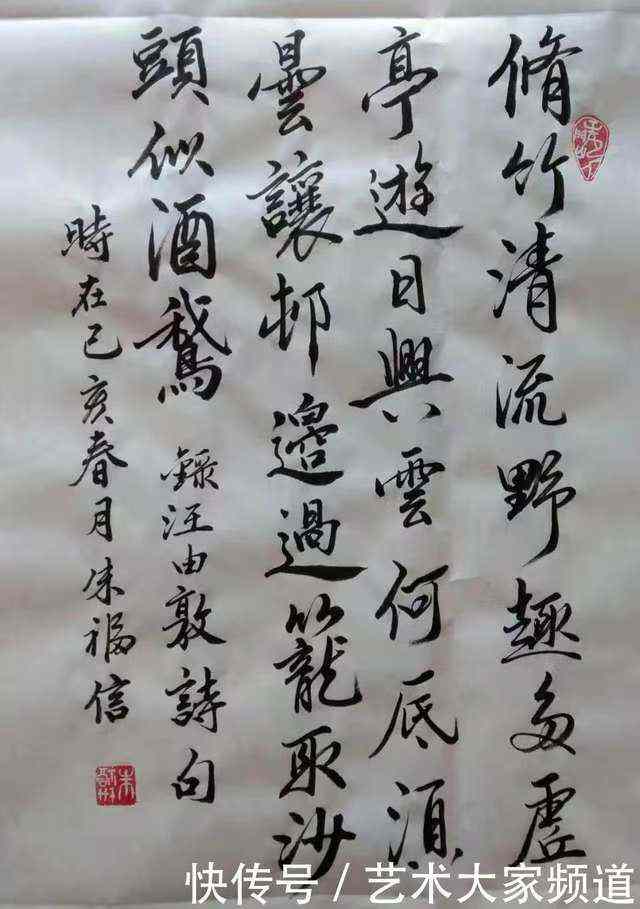 脩竹清流野趣多虛
亭遊日興雲何底須
曇讓邨邊過籠取沙
頭似酒鵝 錄汪由敦詩句
時在己亥春月朱福信
快传号 / 艺术大家频道